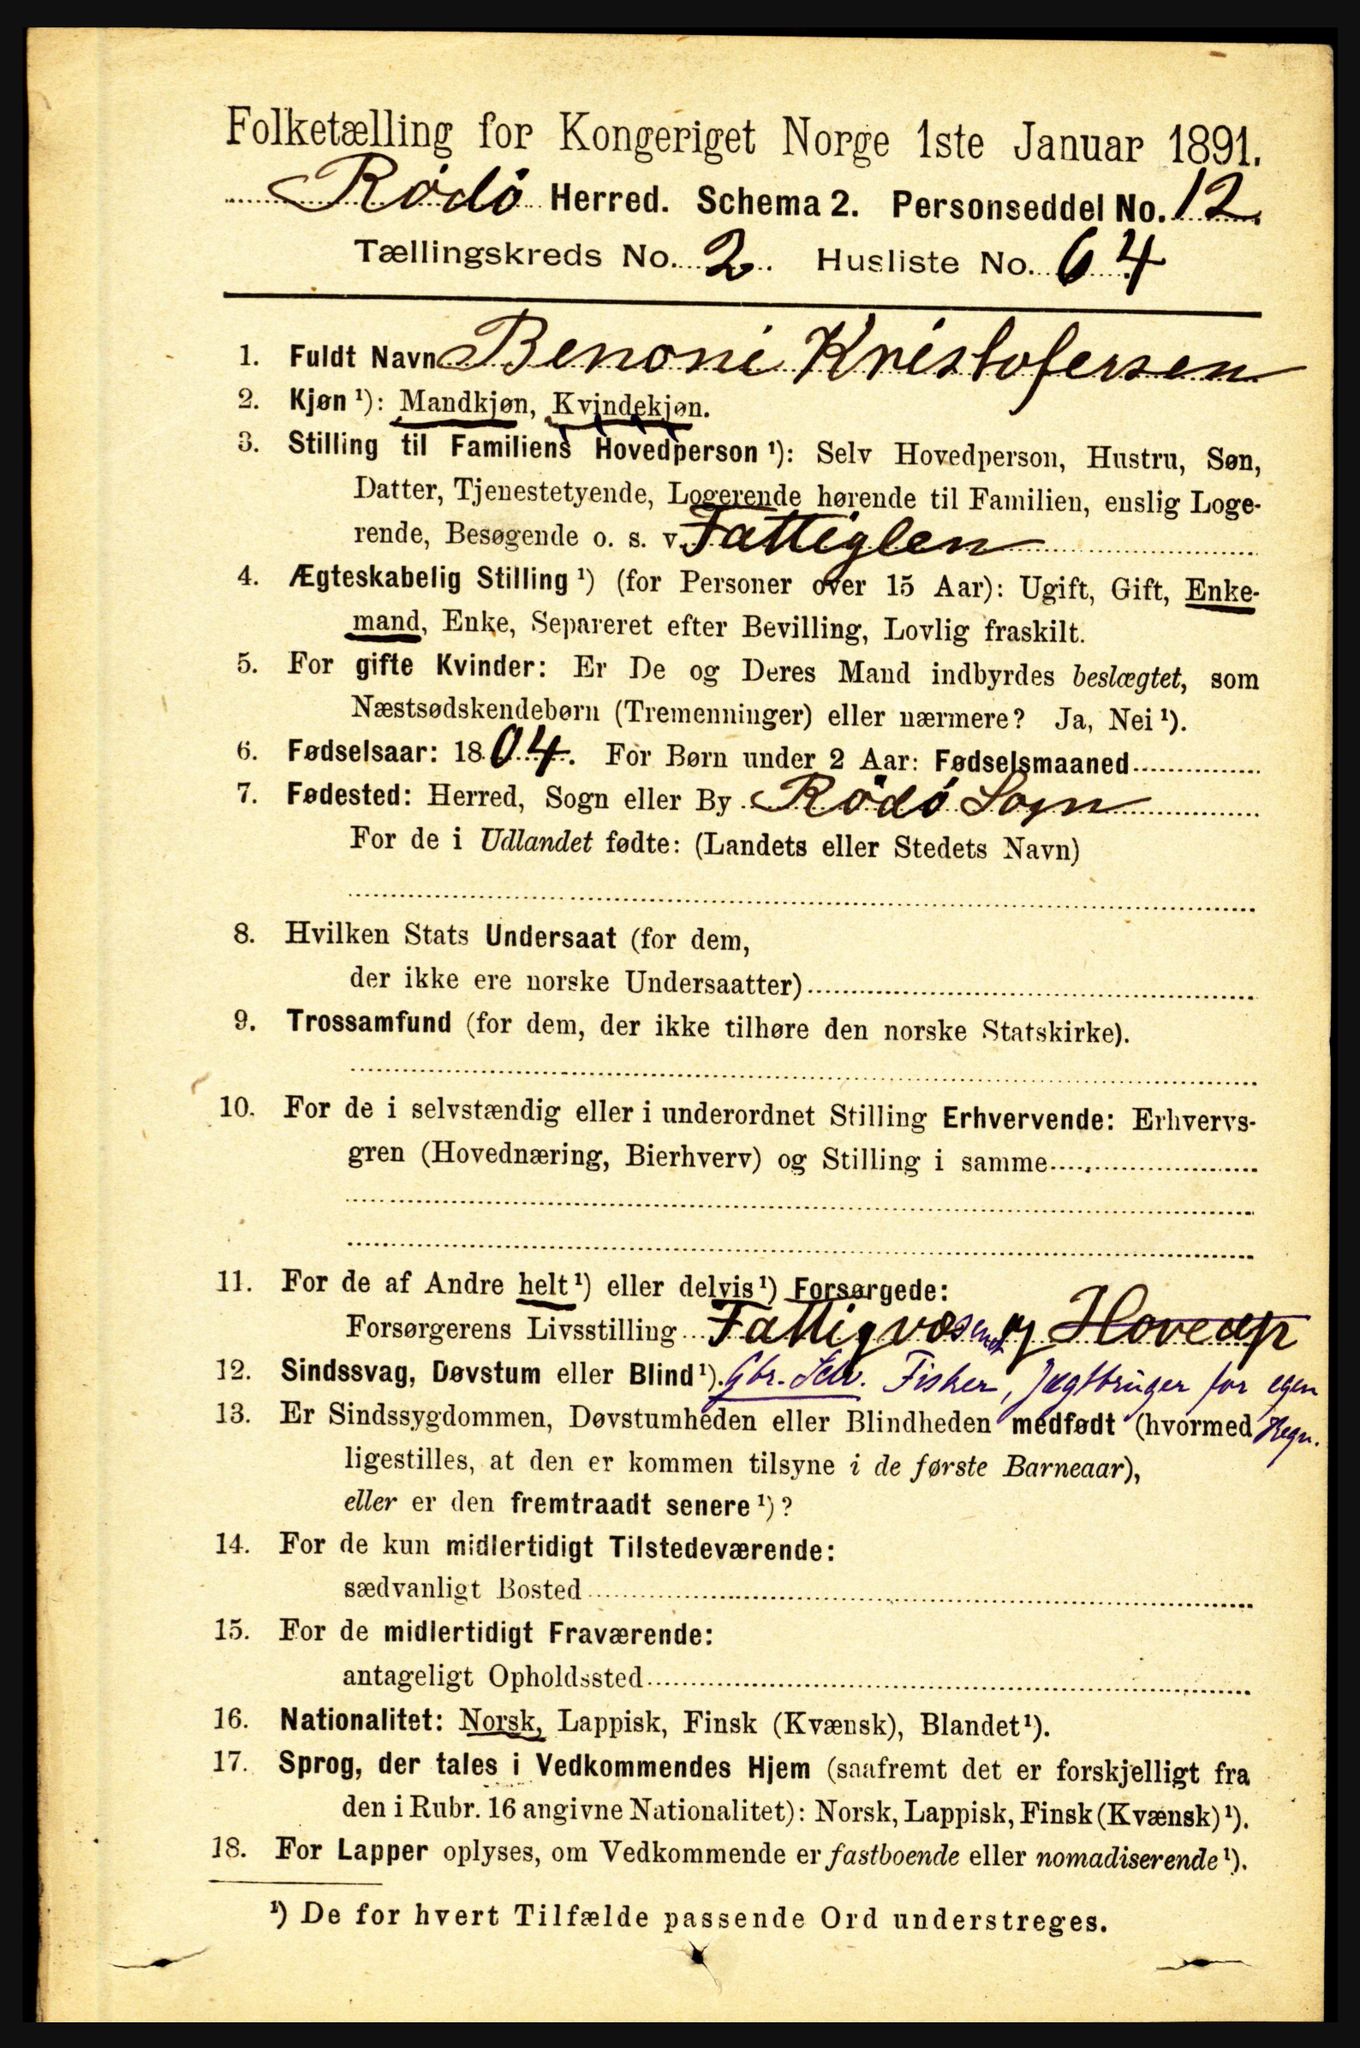 Folketælling for Kongeriget Norge 1ste Januar 1891.
Rödö Herred. Schema 2. Personseddel No. 12.
Tællingskreds No. 2. Husliste No. 64
1. Fuldt Navn Benoni Kristofersen
2. Kjøn ¹): Mandkjøn, Kvindekjøn.
3. Stilling til Familiens Hovedperson ¹): Selv Hovedperson, Hustru, Søn,
Datter, Tjenestetyende, Logerende hørende til Familien, enslig Loge-
rende, Besøgende o. s. v. Fattiglem
4. Ægteskabelig Stilling ¹) (for Personer over 15 Aar): Ugift, Gift, Enke-
mand, Enke, Separeret efter Bevilling, Lovlig fraskilt.
5. For gifte Kvinder: Er De og Deres Mand indbyrdes beslægtet, som
Næstsødskendebørn (Tremenninger) eller nærmere? Ja, Nei ¹).
6. Fødselsaar: 1804. For Børn under 2 Aar: Fødselsmaaned
7. Fødested: Herred, Sogn eller By Rödö Sogn
For de i Udlandet fødte: (Landets eller Stedets Navn)
8. Hvilken Stats Undersaat (for dem,
der ikke ere norske Undersaatter)
9. Trossamfund (for dem, der ikke tilhøre den norske Statskirke).
10. For de i selvstændig eller i underordnet Stilling Erhvervende: Erhvervs-
gren (Hovednæring, Bierhverv) og Stilling i samme
11. For de af Andre helt ¹) eller delvis ¹) Forsørgede:
Forsørgerens Livsstilling Fattigvæsenet og
12. Sindssvag, Døvstum eller Blind ¹). Gbr. Selv. Fisker, Jægtbruger for egen
13. Er Sindssygdommen, Døvstumheden eller Blindheden medfødt (hvormed Regn.
ligestilles, at den er kommen tilsyne i de første Barneaar),
eller er den fremtraadt senere ¹)?
14. For de kun midlertidigt Tilstedeværende:
sædvanligt Bosted
15. For de midlertidigt Fraværende:
antageligt Opholdssted
16. Nationalitet: Norsk, Lappisk, Finsk (Kvænsk), Blandet ¹).
17. Sprog, der tales i Vedkommendes Hjem (saafremt det er forskjelligt fra
den i Rubr. 16 angivne Nationalitet): Norsk, Lappisk, Finsk (Kvænsk) ¹).
18. For Lapper oplyses, om Vedkommende er fastboende eller nomadiserende ¹).
¹) De for hvert Tilfælde passende Ord understreges.